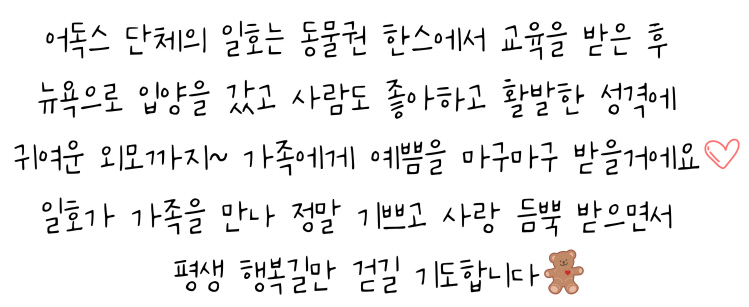 어독스 단체의 일호는 동물권 한스에서 교육을 받은 후
뉴욕으로 입양을 갔고 사람도 좋아하고 활발한 성격에
귀여운 외모까지~ 가족에게 예쁨을 마구마구 받을거에요
일호가 가족을 만나 정말 기쁘고 사랑 듬뿍 받으면서
평생 행복길만 걷길 기도합니다